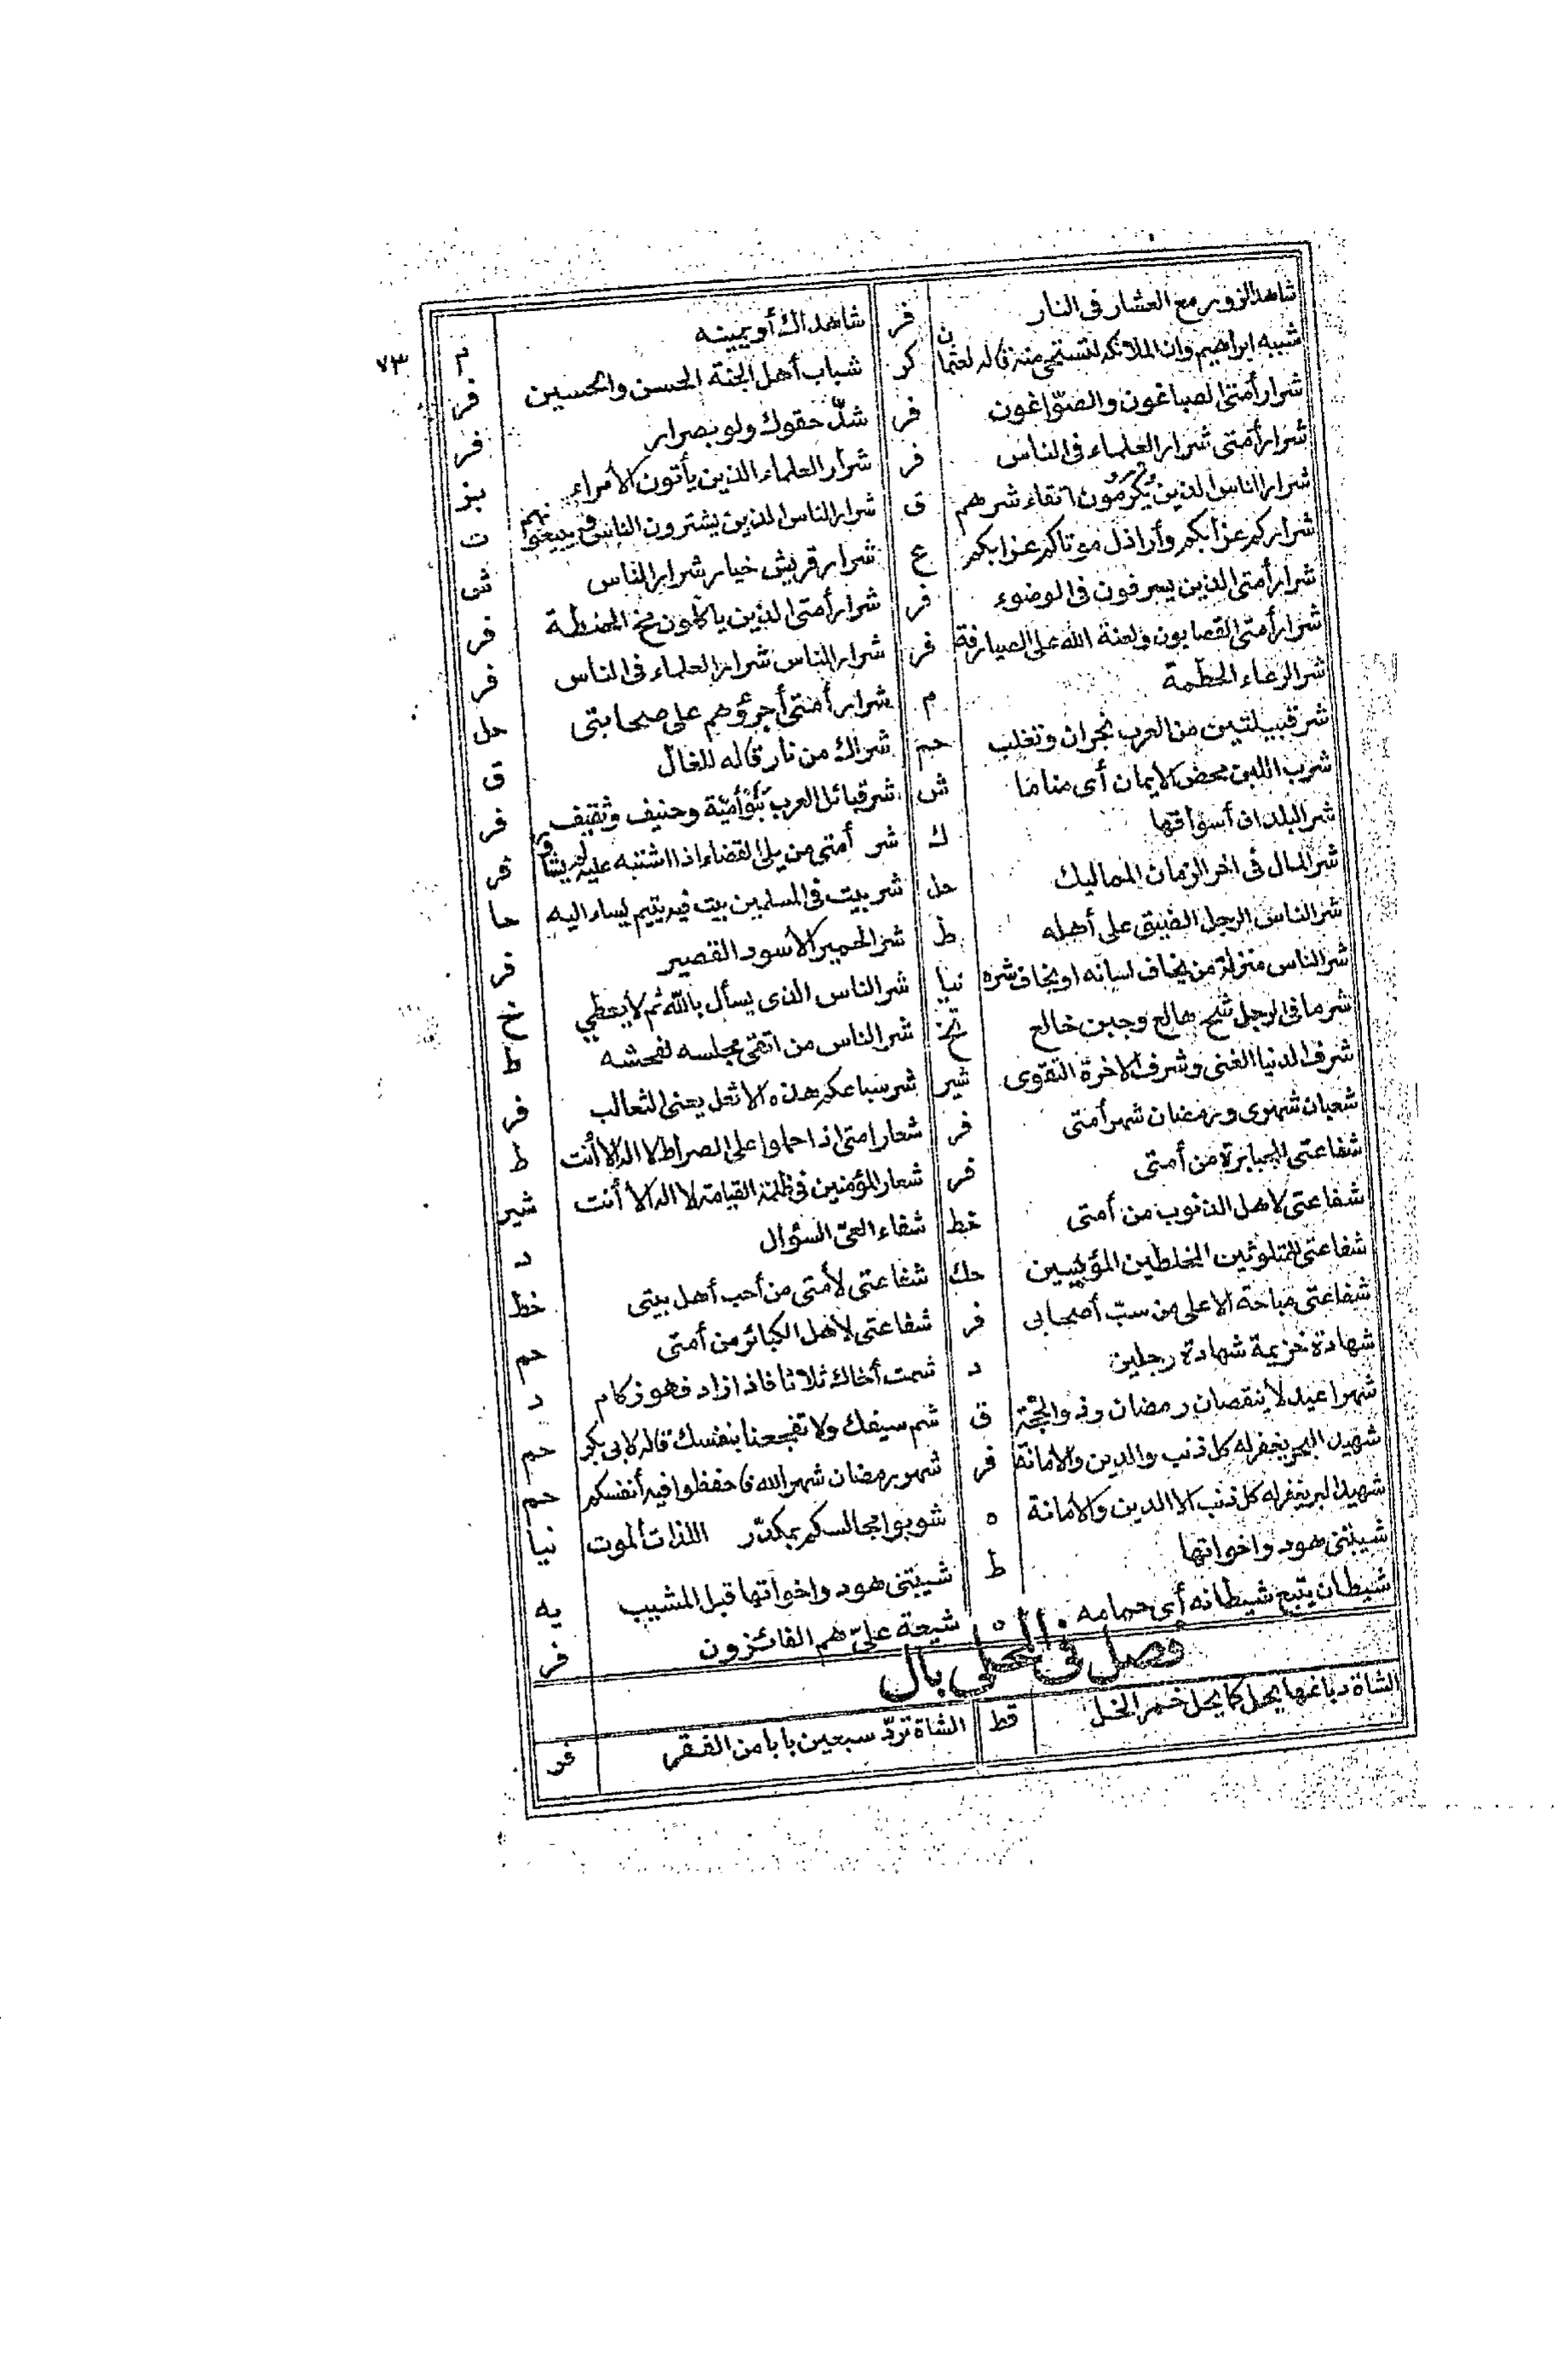 ٧٣
شاهد الزور مع العشار فى النار فر شاهداك أو يمينه م
شبيه ابراهيم وان الملائكة لتستحيى منه قاله لعثمان كر شباب أهل الجنة الحسن والحسين فر
شرار أمتى الصباغون والصوّاغون فر شدّ حقوك ولو بصرار فر
شرار أمتى شرار العلماء فى الناس فر شرار العلماء الذين يأتون الأمراء بز
شرار الناس الذين يكرمون اتقاء شرهم ق شرار الناس الذين يشترون الناس ويبيعونهم ت
شراركم عزابكم وأراذل موتاكم عزابكم ع شرار قريش خيار شرار الناس ش
شرار أمتى الذين يسرفون فى الوضوء فر شرار أمتى الذين ياكلون مخ الحنطة فر
شرار أمتى القصابون ولعنة الله على الصيارفة فر شرار الناس شرار العلماء فى الناس فر
شر الرعاء الحطمة م شرار أمتى أجرؤهم على صحابتى حل
شر قبيلتين من العرب نجران وتغلب حم شراك من نار قاله للغالّ ق
شرب اللبن محض الايمان أى مناما ش شر قبائل العرب بنو أميّة وحنيف وثقيف فر
شر البلدان أسواقها ك شر أمتى من يلى القضاء اذا اشتبه عليه لم يشاور فر
شر المال فى اخر الزمان المماليك حل شر بيت فى المسلمين بيت فيه يتيم يساء اليه حا
شر الناس الرجل الضيق على أهله ط شر الحمير الأسود القصير فر
شر الناس منزلة من يخاف لسانه او يخاف شره نيا شر الناس الذى يسأل بالله ثم لا يعطي تخ
شر ما فى الرجل شح هالع وجبن خالع تخ شر الناس من اتقى مجلسه لفحشه ط
شرف الدنيا الغنى وشرف الاخرة التقوى شير شر سباعكم هذه الاثعل يعنى الثعالب فر
شعبان شهرى ورمضان شهر أمتى فر شعار امتى اذا حملوا على الصراط لا اله الا أنت ط
شفاعتى للجبابرة من أمتى فر شعار المؤمنين فى ظلمة القيامة لا اله الا أنت شير
شفاعتى لاهل الذنوب من أمتى خط شفاء العىّ السؤال د
شفاعتى للمتلوثين المخلطين حك شفاعتى لأمتى من أحب أهل بيتى خط
شفاعتى مباحة الا على من سبّ أصحابى فر شفاعتى لأهل الكبائر من أمتى حم
شهادة خزيمة شهادة رجلين د شمت أخاك ثلاثا فاذا زاد فهو زكام د
شهرا عيد لا ينقصان رمضان وذو الحجّة ق شم سيفك ولا تفجعنا بنفسك قاله لابى بكر حم
شهيد البحر يغفر له كل ذنب والدين والامانة فر شهر رمضان شهر الله فاحفظوا فيه أنفسكم حم
شهيد البر يغفر له كل ذنب الا الدين والأمانة ه شوبوا مجالسكم بمكدّر اللذات ألموت نيا
شيبتنى هود واخواتها ط شيبتنى هود واخواتها قبل المشيب يه
شيطان يتبع شيطانه أى حمامه ه شيعة علىّ هم الفائزون فر
فصل فى المحلى بال
الشاة دباغها يحل كما يحل خمر الخل قط الشاة تردّ سبعين بابا من الفقر فر